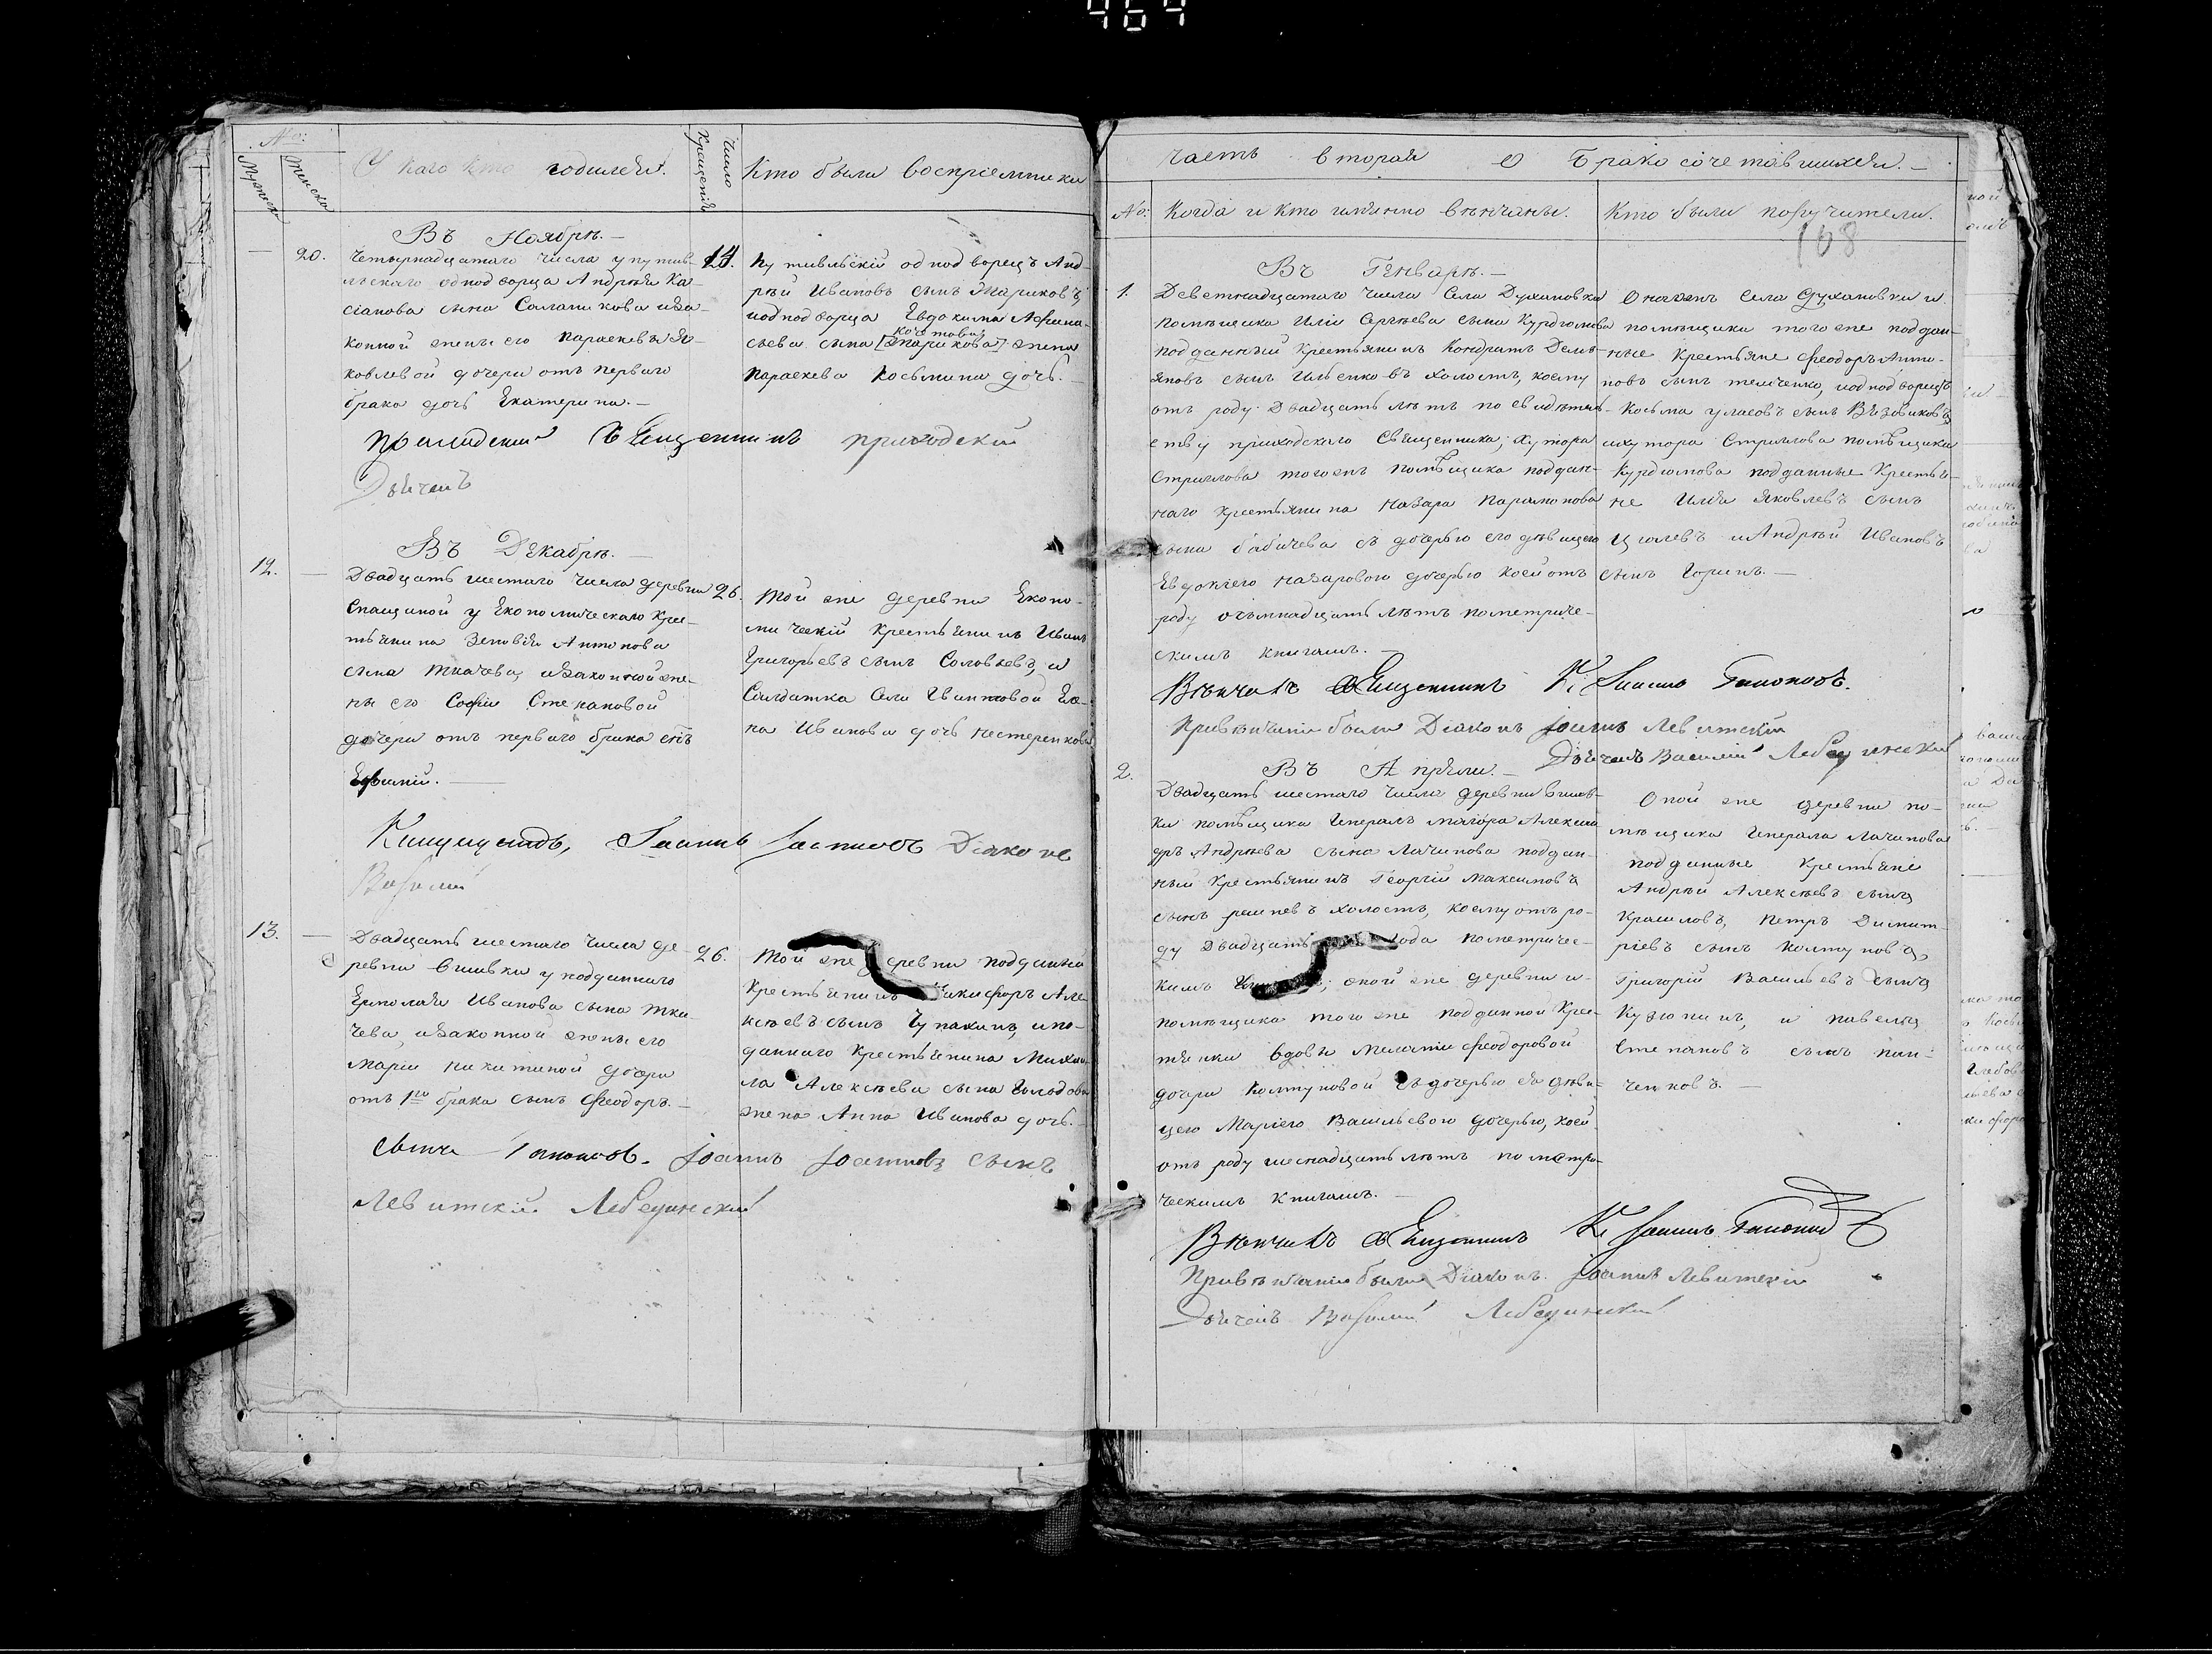 464
No:
Мужеска
Женска
У кого кто родился.
Число Крещенія
Кто были восприемники
Въ Ноябрѣ.
20.
Четырнадцатого числа у путив-
льскаго однодворца Андрѣя Ка-
сіанова сына Саланикова иза-
конной жены его Параскевы Я-
ковлевой дочери отъ перваго
брака дочь Екатерина.
14.
Путивльскій однодворецъ Анд-
рѣй Ивановъ сынъ Жариковъ
иоднодворца Евдокима Афана-
сьева сына [Жарикова] жена
Параскева Косьмина дочь.
Приходскій Священникъ приходскій
Дьячекъ
Въ Декабрѣ.
12.
Двадцать шестаго числа деревни
Спащиной у Економическаго Крес-
тьянина Зеновія Антонова
сына Ткачева, изаконной же-
ны его Софіи Степановой
дочери отъ перваго брака сынъ
Евфимій.
26.
Той же деревни Еконо-
мическій Крестьянинъ Иванъ
Григорьевъ сынъ Соловьевъ, и
Солдатка Села Ивановой Еле-
на Иванова дочь Нестеренкова
Іоаннъ Іоанновъ Діаконъ
Василій
13.
Двадцать шестаго числа де-
ревни Вишевки у подданнаго
Ермолая Иванова сына Тка-
чева, изаконной жены его
Маріи Никитиной дочери
отъ 1го брака сынъ Феодоръ.
26.
Той же деревни подданны
Крестьянинъ Никифоръ Але-
ксѣевъ сынъ Чупахинъ, ипо-
даннаго Крестьянина Михаи-
ла Алексѣева сына Голодова
жена Анна Иванова дочь.
сынъ Гапоновъ. Іоаннъ Іоанновъ сынъ
Левитскій Лебединскій
часть вторая О Бракосочетавшихся.
No: Когда и кто имянно вѣнчаны. Кто были поручители.
168
Въ Генварѣ.
1.
Деветнадцатаго числа Села Духановки
помѣщика Иліи Сергѣева сына Курдюмова
подданный Крестьянинъ Кондратъ Демь-
яновъ сынъ Ильенковъ холостъ, коему
отъ роду двадцать лѣтъ по свидѣтель-
ству приходскаго Священника; хутора
Стрилова тогожъ помѣщика поддан-
наго крестьянина Назара Парамонова
сына Бабичева съ дочерью его дѣвицею
Евдокіею Назаровою дочерью коей отъ
роду осьмнадцать лѣтъ пометриче-
скимъ книгамъ.
Оногожъ Села Духановки и
помѣщика того же поддан-
ные крестьяне Феодоръ Анти-
повъ сынъ Телеченко, иоднодворецъ
Косьма Уласовъ сынъ Вязовиковъ,
ихутора Стрилова помѣщика
Курдюмова подданные Крестья-
не Илія Яковлевъ сынъ
Цюлевъ иАндрѣй Ивановъ
сынъ Горинъ.
Вѣнчалъ Священникъ К. Іоаннъ Гапоновъ.
При вѣнчаніи были Діаконъ Іоаннъ Левитскій
Дьячекъ Василій Лебединскій
Въ Апрѣли.
2.
Двадцать шестаго числа деревни Вишев-
ки помѣщика Генералъ маіора Алексан
дръ Андрѣева сына Лачинова поддан-
ный Крестьянинъ Георгій Максимовъ
сынъ решневъ холостъ, коему отъ ро-
ду двадцать года пометричес-
кимъ; оной же деревни и
помѣщика того же подданной Крес-
тьянки вдовы Мелатіи Феодоровой
дочери Колтуновой съ дочерью ея дѣви-
цею Маріею Васильевою дочерью, коей
отъ роду шеснадцать лѣтъ пометри-
ческимъ книгамъ.
Оной же деревни по-
мѣщика Генерала Лачинова
подданные Крестьяне
Андрѣй Алексѣевъ сынъ
Крашловъ, Петръ Димит-
ріевъ сынъ Колтуновъ,
Григорій Васильевъ сынъ
Кузюнинъ, и Павелъ
Степановъ сынъ Пан-
ченковъ.
Вѣнчалъ Священникъ К. Іоаннъ Гапоновъ
При вѣнчаніи были Діаконъ Іоаннъ Левитскій
Дьячекъ Василій Лебединскій